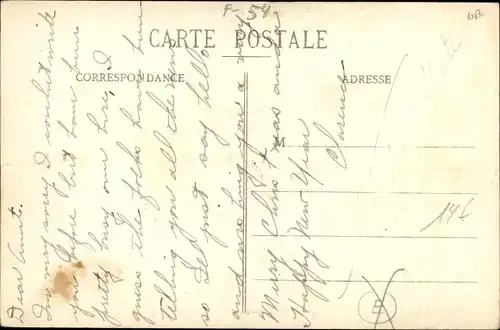 F-54
DB
CARTE POSTALE
CORRESPONDANCE
ADRESSE
M
Dear Aunt.
I'm very sorry I couldn't write
you before but have been
pretty busy over here, I
guess the folks have been
telling you all the news
so Let just say hello
and wishing you a very
Merry Christmas and a
Happy New Year
Clarence
146